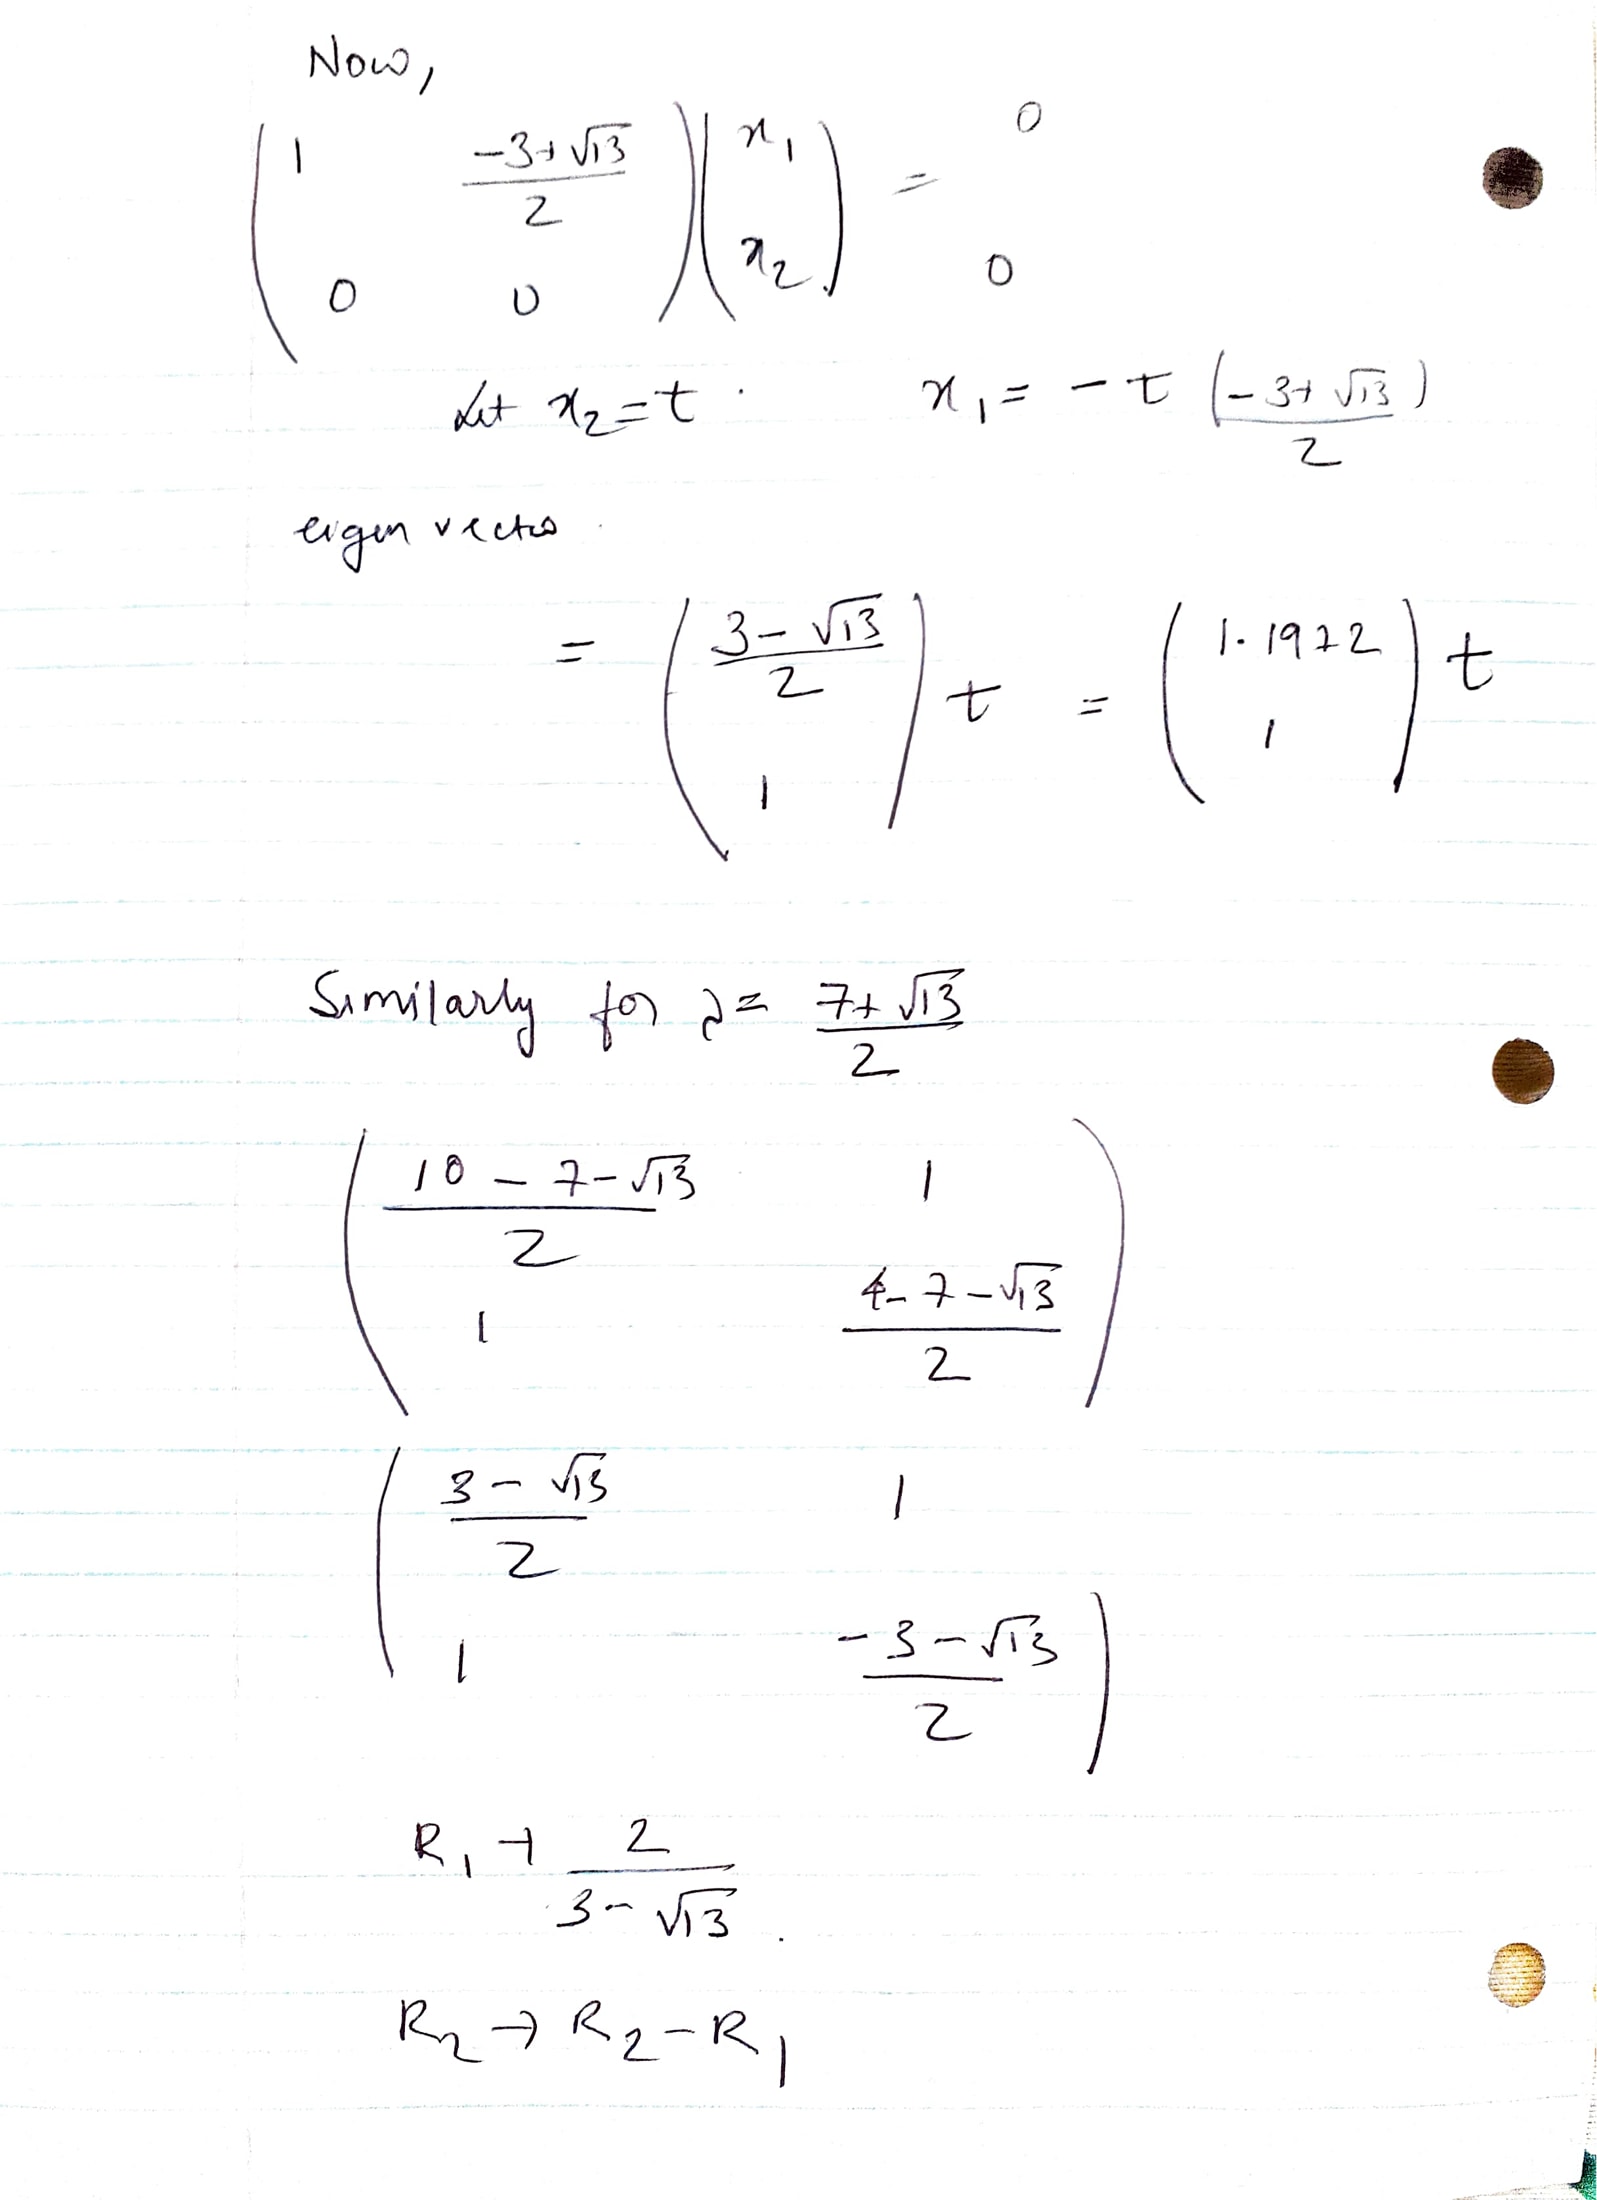 Now,
( 1  (-3+√13)/2 ; 0  0 ) ( x₁ ; x₂ ) = 0 ; 0
Let x₂=t .  x₁ = -t (-3+√13)/2
eigen vector .
= ( (3-√13)/2 ; 1 ) t = ( 1.1972 ; 1 ) t
Similarly for λ = (7+√13)/2
( (10-7-√13)/2  1 ; 1  (4-7-√13)/2 )
( (3-√13)/2  1 ; 1  (-3-√13)/2 )
R₁ → 2/(3-√13) .
R₂ → R₂-R₁